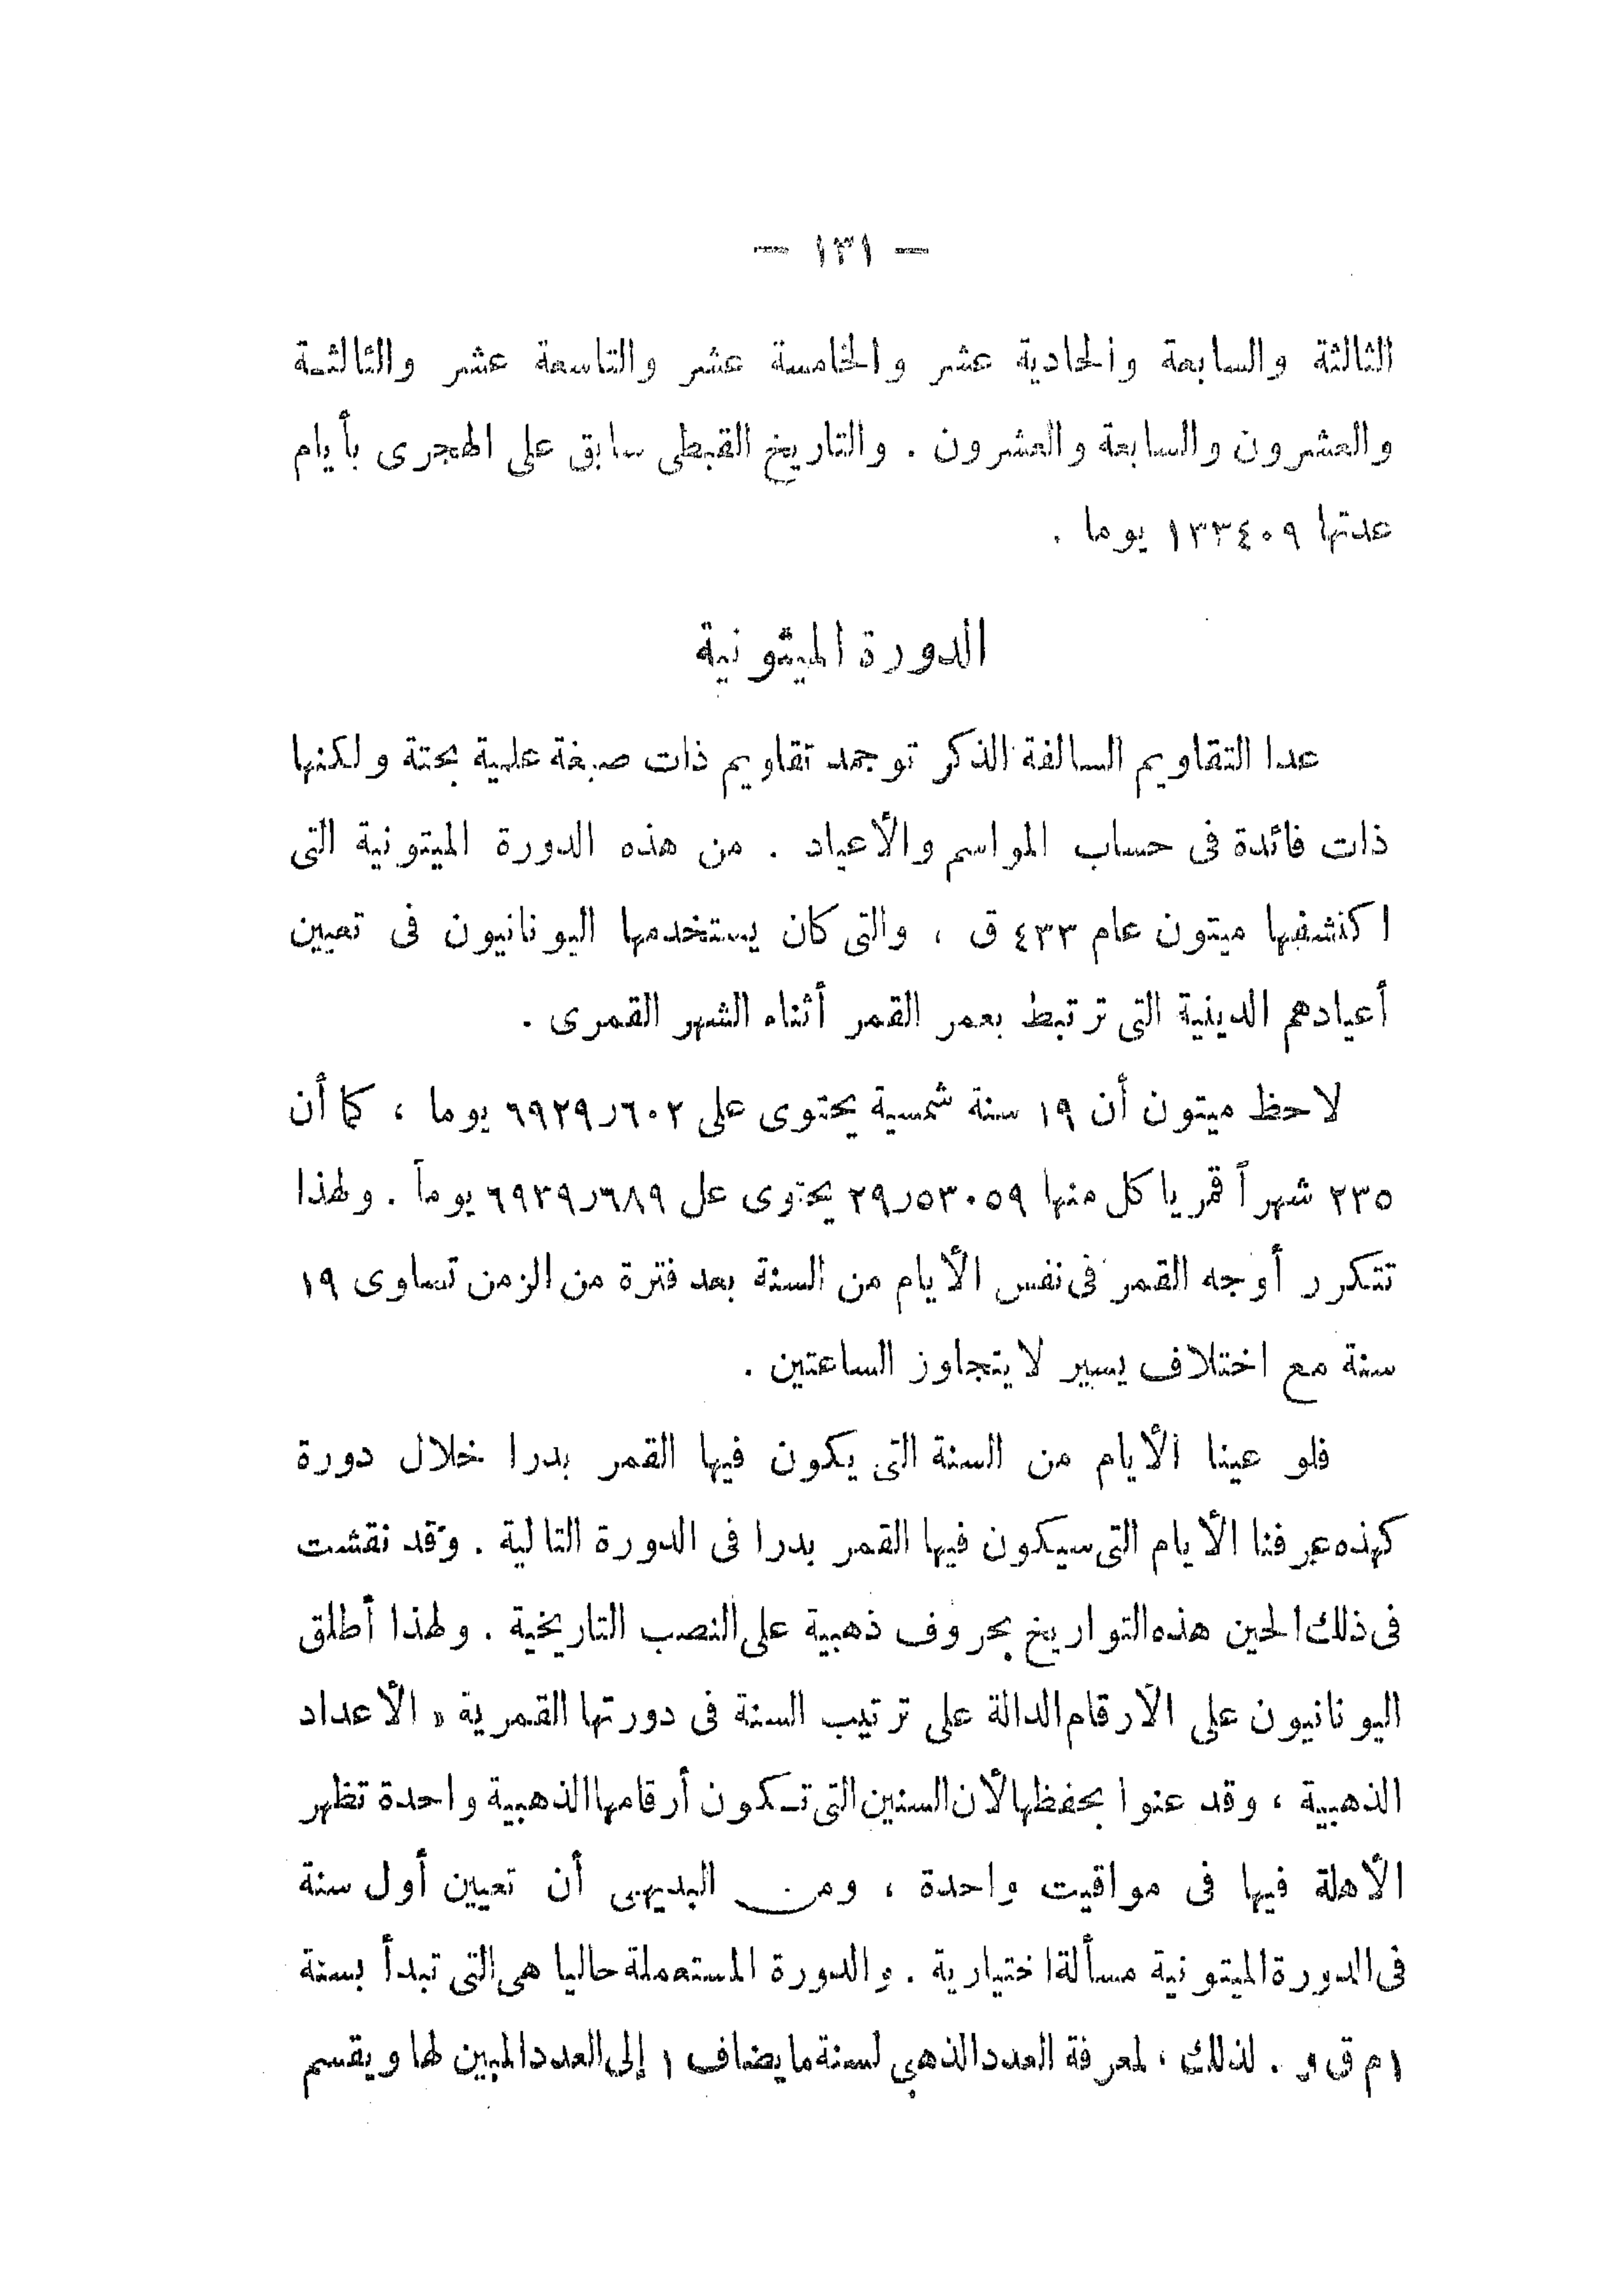 — ١٣١ —
الثالثة والسابعة والحادية عشر والخامسة عشر والتاسعة عشر والثالثة
والعشرون والسابعة والعشرون . والتاريخ القبطى سابق على الهجرى بأيام
عدتها ١٢٣٤٠٩ يوما .
الدورة الميثونية
عدا التقاويم السالفة الذكر توجد تقاويم ذات صبغة علمية بحتة ولكنها
ذات فائدة فى حساب المواسم والأعياد . من هذه الدورة الميتونية التى
اكتشفها ميتون عام ٤٣٣ ق ، والتى كان يستخدمها اليونانيون فى تعيين
أعيادهم الدينية التى ترتبط بعمر القمر أثناء الشهر القمرى .
لاحظ ميتون أن ١٩ سنة شمسية يحتوى على ٦٩٣٩ر٦٠٢ يوما ، كما أن
٢٣٥ شهراً قمريا كل منها ٢٩ر٥٣٠٥٩ يحتوى عل ٦٩٣٩ر٦٨٩ يوماً . ولهذا
تتكرر أوجه القمر فى نفس الأيام من السنة بعد فترة من الزمن تساوى ١٩
سنة مع اختلاف يسير لا يتجاوز الساعتين .
فلو عينا الأيام من السنة التى يكون فيها القمر بدرا خلال دورة
كهذه عرفنا الأيام التى سيكون فيها القمر بدرا فى الدورة التالية . وقد نقشت
فى ذلك الحين هذه التواريخ بحروف ذهبية على النصب التاريخية . ولهذا أطلق
اليونانيون على الارقام الدالة على ترتيب السنة فى دورتها القمرية « الأعداد
الذهبية ، وقد عنوا بحفظها لأن السنين التى تكون أرقامها الذهبية واحدة تظهر
الأهلة فيها فى مواقيت واحدة ، ومن البديهى أن تعيين أول سنة
فى الدورة الميتونية مسألة اختيارية . والدورة المستعملة حاليا هى التى تبدأ بسنة
١ م ق و . لذلك ، لمعرفة العدد الذهبى لسنة ما يضاف ١ إلى العدد المبين لها ويقسم